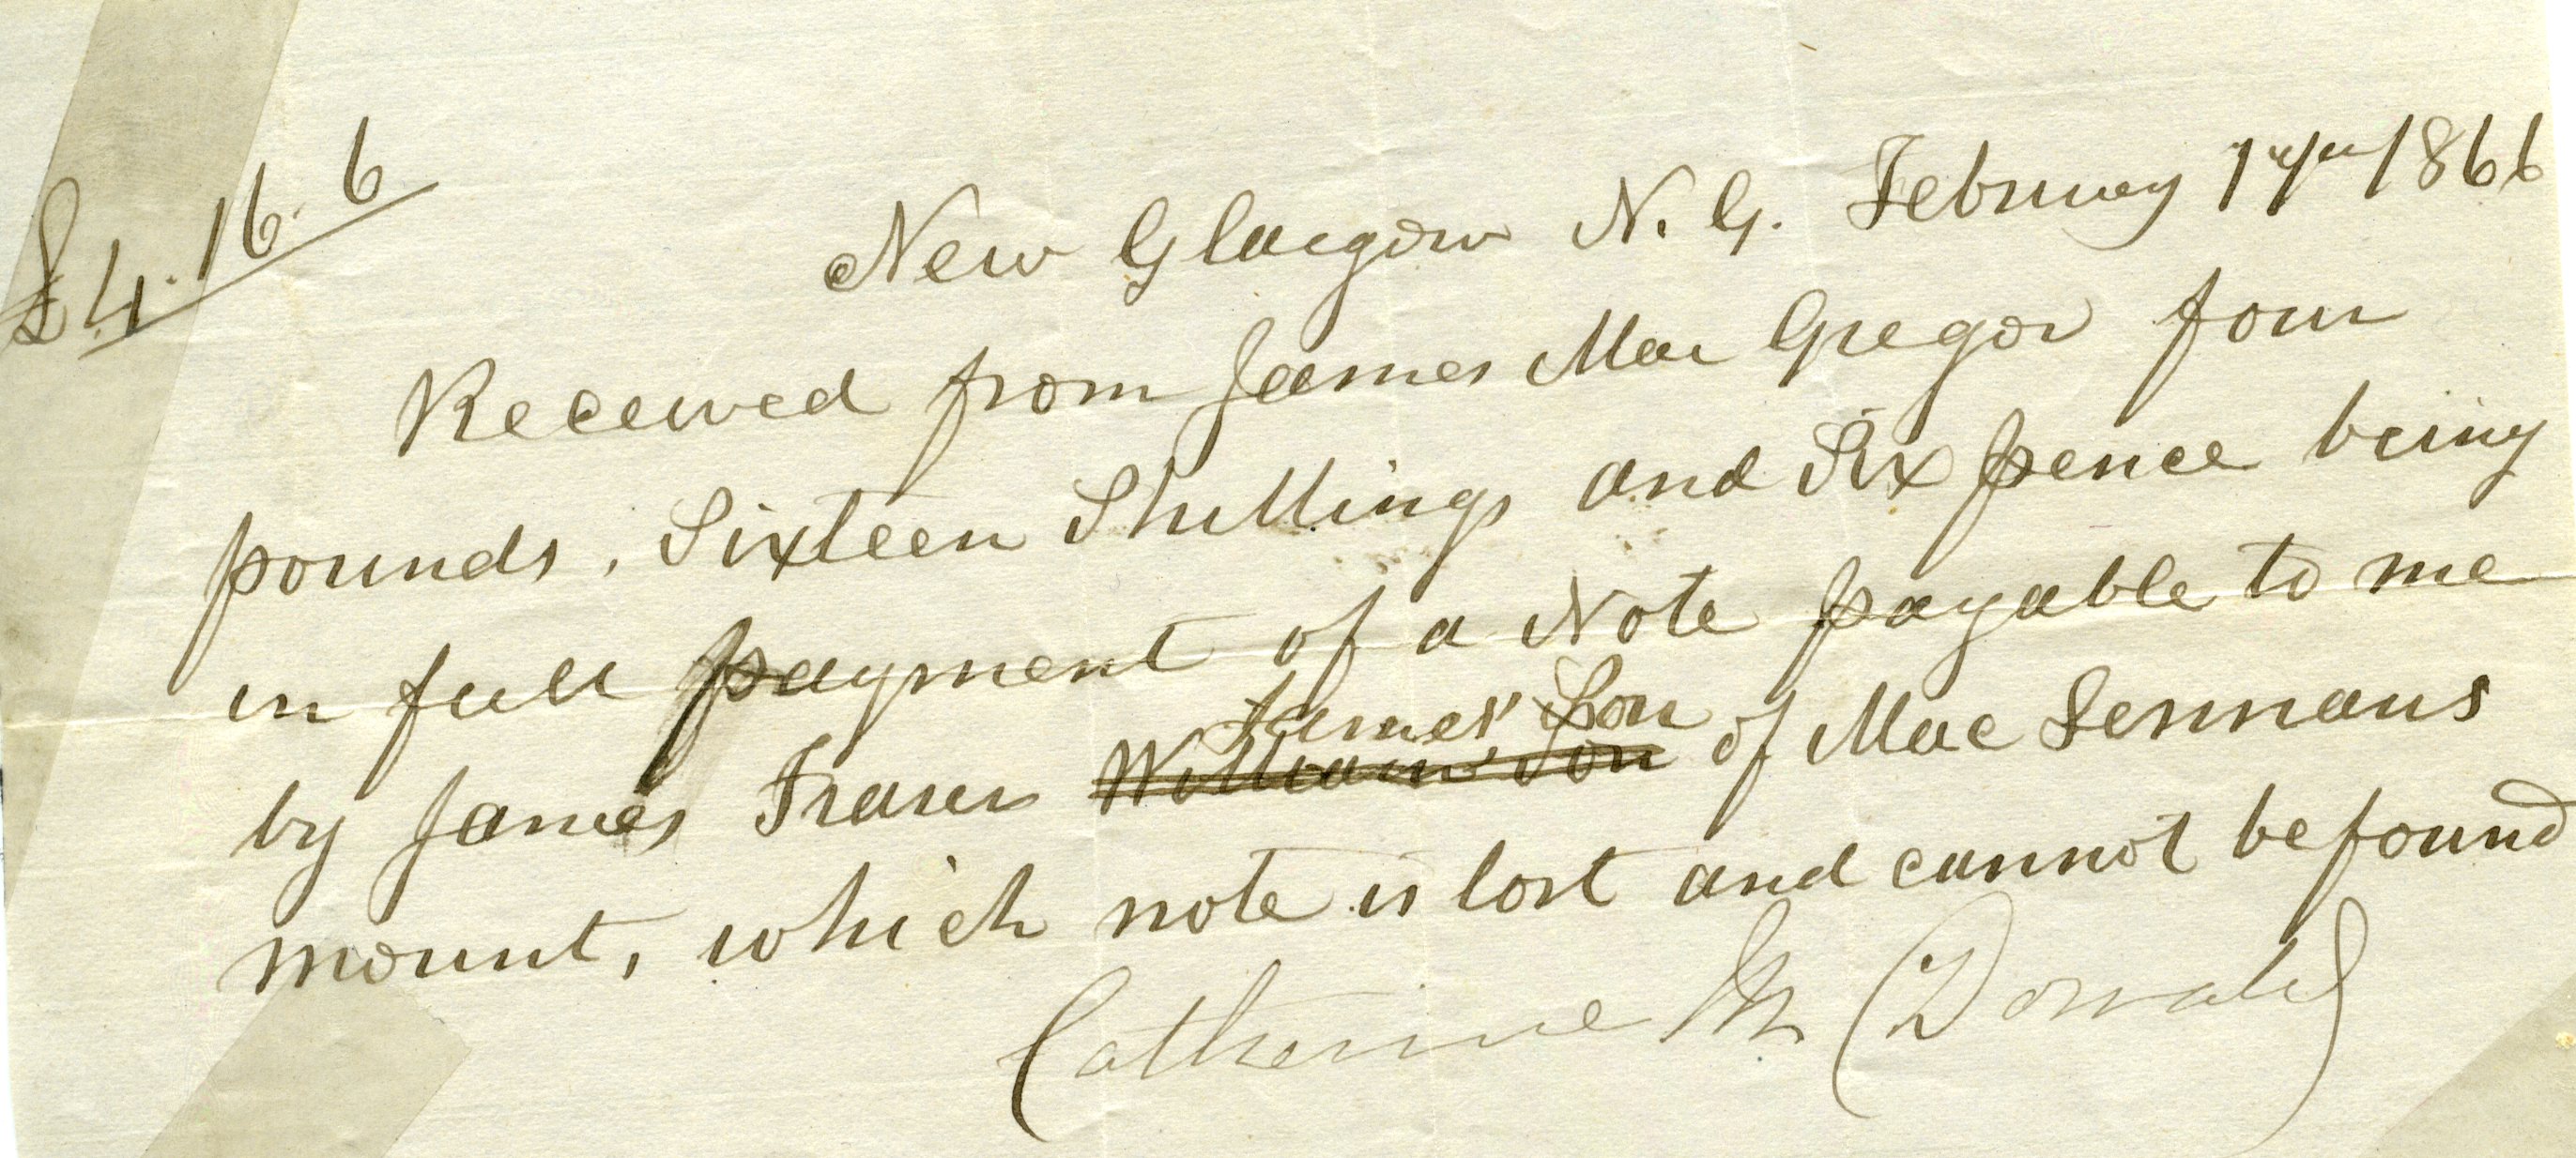 £4.16.6
New Glasgow N.G. February 17th 1866
Received from James MacGregor four
pounds, Sixteen Shillings and Six pence being
in full payment of a Note payable to me
James' Son
by James Fraser William's Son of Mac Lennans
mount, which note is lost and cannot be found
Catherine Mc Donald